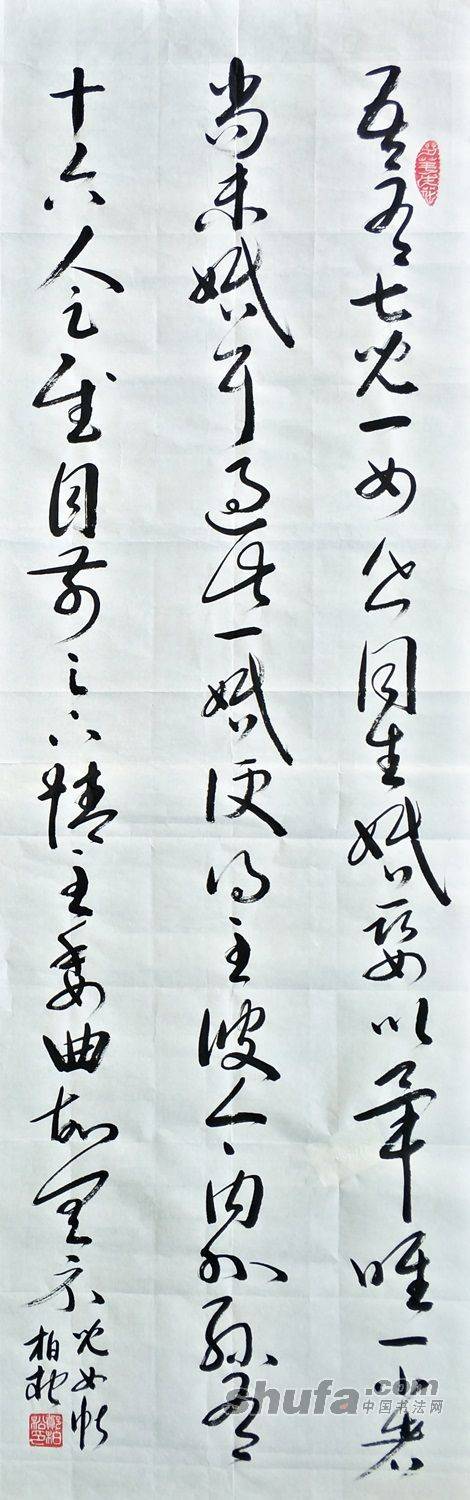 吾有七兒一女皆同生婚娶以畢唯一小者
尚未婚耳過此一婚便得至彼今內外孫有
十六人足慰目前足下情至委曲故具示
兒女帖
柏松
shufa.com
中国书法网